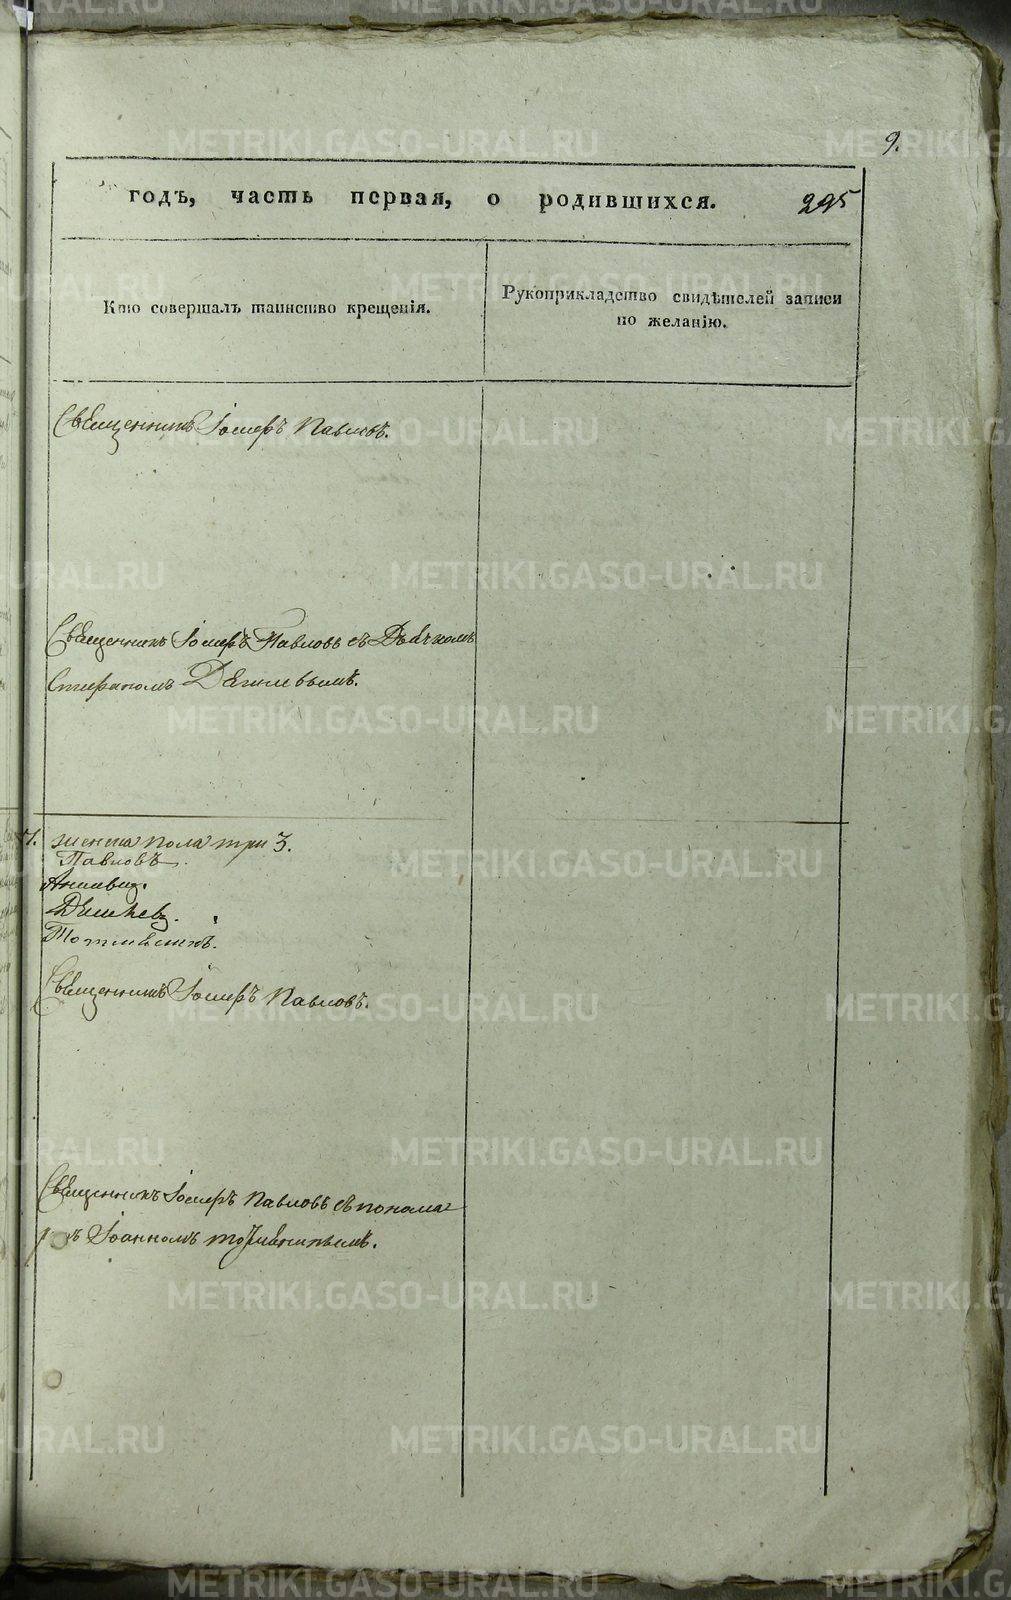 9.
годъ, часть первая, о родившихся. 295
Кто совершалъ таинство крещенія.
Рукоприкладство свидѣтелей записи
по желанію.
Священникъ Іосифъ Павловъ.
Священникъ Іосифъ Павловъ съ Дьячкомъ
Стефаномъ
женска пола три 3.
Павловъ.
Священникъ Іосифъ Павловъ.
Священникъ Іосифъ Павловъ съ понома
ремъ Іоанномъ
METRIKI.GASO-URAL.RU